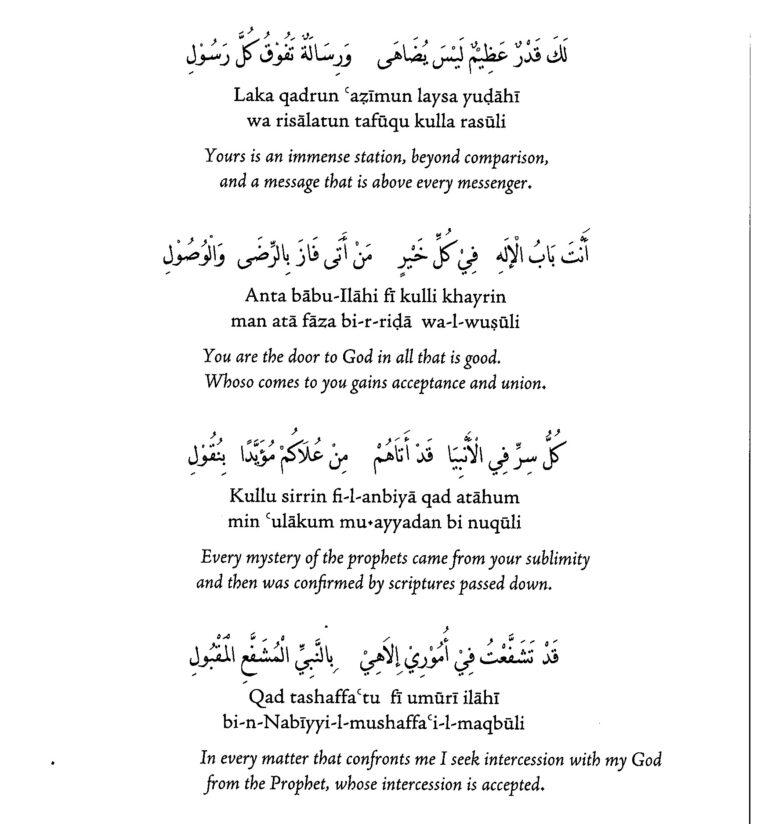 لَكَ قَدْرٌ عَظِيْمٌ لَيْسَ يُضَاهَى وَرِسَالَةٌ تَفُوْقُ كُلَّ رَسُوْلِ
Laka qadrun ʿaẓīmun laysa yuḍāhī
wa risālatun tafūqu kulla rasūli
Yours is an immense station, beyond comparison,
and a message that is above every messenger.
أَنْتَ بَابُ الْإِلَهِ فِيْ كُلِّ خَيْرٍ مَنْ أَتَى فَازَ بِالرِّضَى وَالْوُصُوْلِ
Anta bābu-Ilāhi fī kulli khayrin
man atā fāza bi-r-riḍā wa-l-wuṣūli
You are the door to God in all that is good.
Whoso comes to you gains acceptance and union.
كُلُّ سِرٍّ فِي الْأَنْبِيَا قَدْ أَتَاهُمْ مِنْ عُلَاكُمْ مُؤَيَّدًا بِنُقُوْلِ
Kullu sirrin fi-l-anbiyā qad atāhum
min ʿulākum mu•ayyadan bi nuqūli
Every mystery of the prophets came from your sublimity
and then was confirmed by scriptures passed down.
قَدْ تَشَفَّعْتُ فِيْ أُمُوْرِيْ إِلَاهِيْ بِالنَّبِيِّ الْمُشَفَّعِ الْمَقْبُولِ
Qad tashaffaʿtu fī umūrī ilāhī
bi-n-Nabīyyi-l-mushaffaʿi-l-maqbūli
In every matter that confronts me I seek intercession with my God
from the Prophet, whose intercession is accepted.